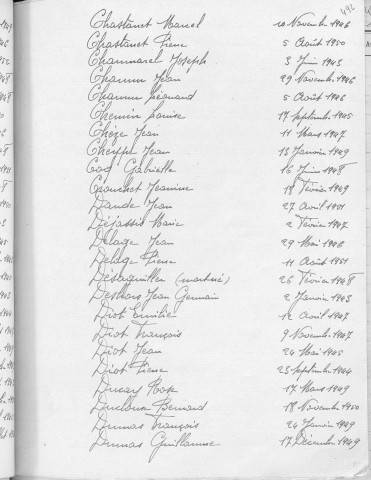 492
Chastanet Marcel 10 Novembre 1946
Chastanet Pierre 5 Août 1950
Chaumarel Joseph 3 Juin 1943
Jean 29 Novembre 1946
Léonard 5 Août 1946
Chemin Louise 17 Septembre 1945
Chèze Jean 11 Mars 1947
Jean 13 Janvier 1949
Gabrielle 16 Juin 1948
Crouchet Jeanine 18 Février 1949
Daude Jean 27 Avril 1951
Marie 2 Février 1947
Delage Jean 29 Mai 1946
Delage Pierre 11 Août 1951
26 Février 1948
Deshors Jean Germain 2 Janvier 1943
Diot Emilie 12 Avril 1947
Diot François 9 Novembre 1947
Diot Jean 24 Mai 1945
Diot Pierre 25 Septembre 1944
17 Mars 1949
Ducloux Bernard 18 Novembre 1950
Dumas François 24 Janvier 1949
Dumas Guillaume 17 Décembre 1949